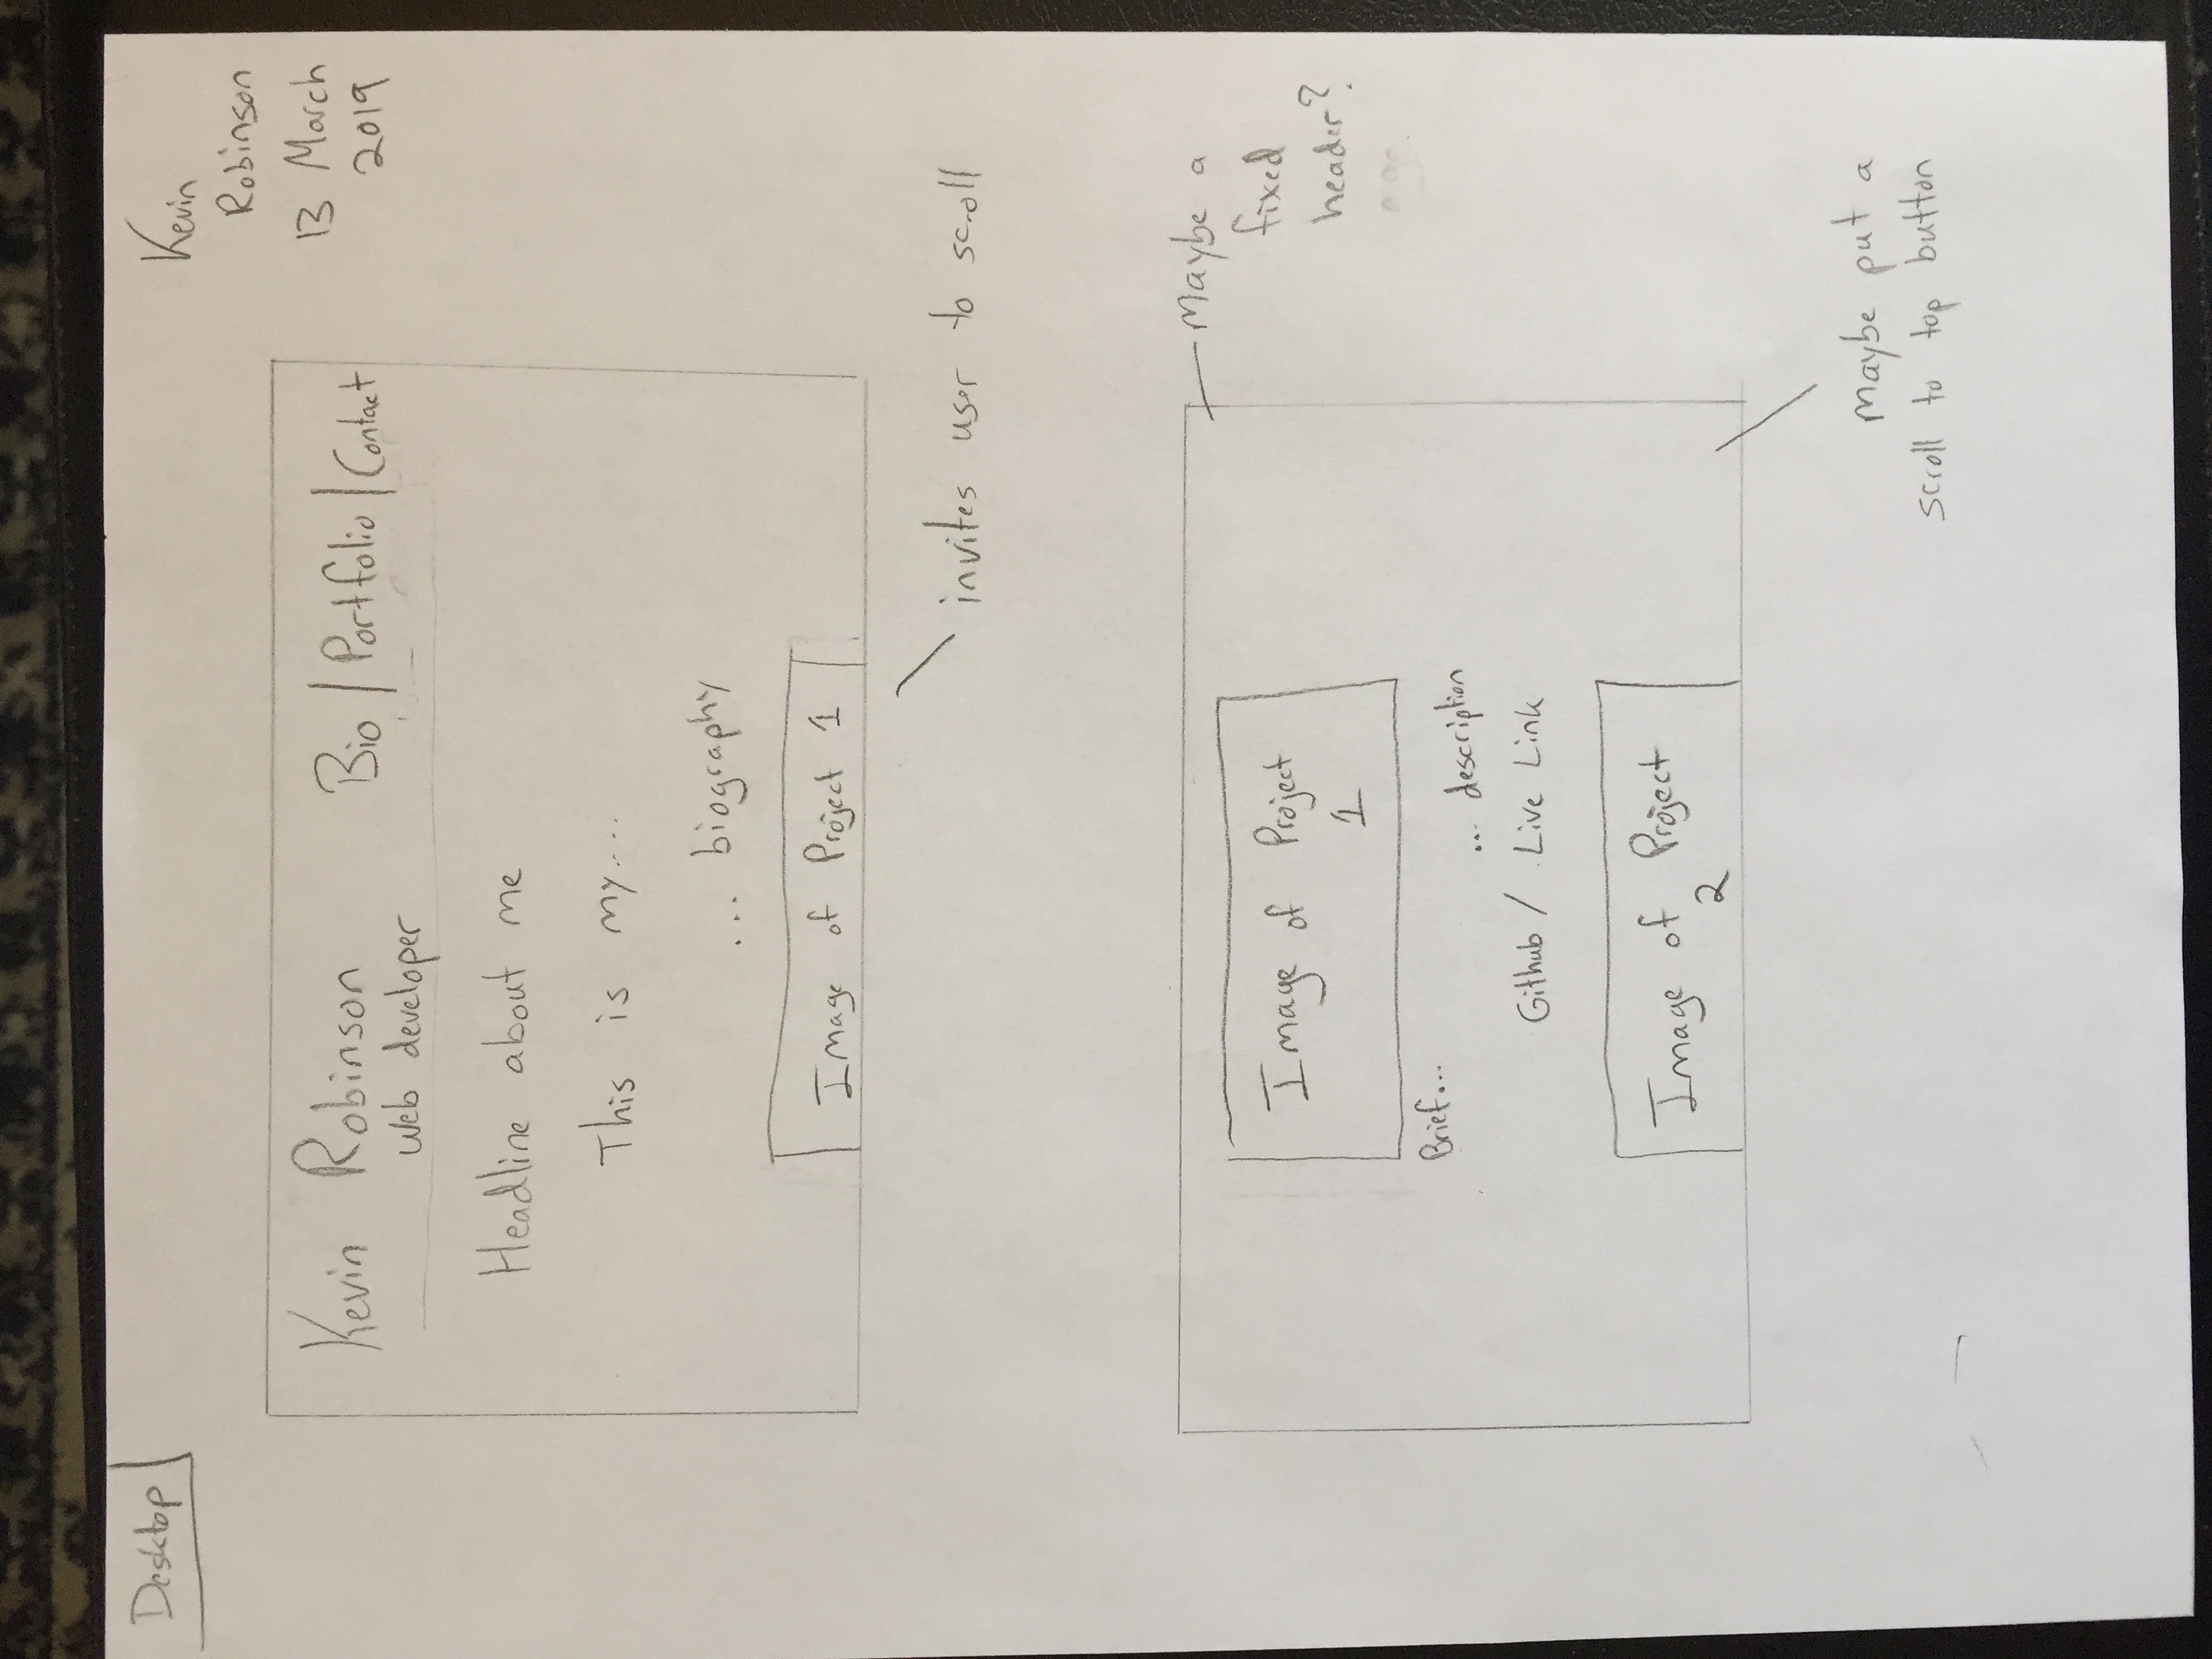 Desktop
Kevin
Robinson
13 March
2019
Kevin Robinson
Web developer
Bio | Portfolio | Contact
Headline about me
This is my....
... biography
Image of Project 1
invites user to scroll
Maybe a
fixed
header?
Image of Project
1
Brief...
... description
Github / Live Link
Image of Project
2
Maybe put a
scroll to top button